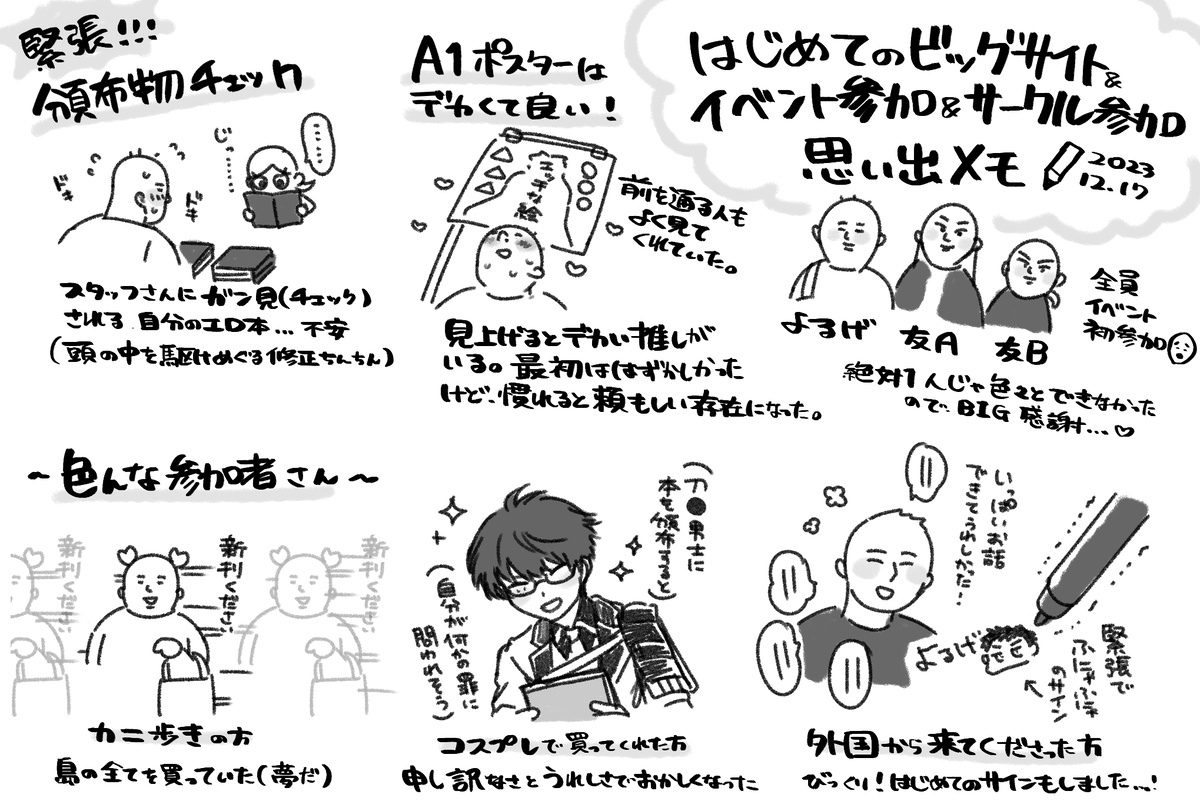 はじめてのビッグサイト&
イベント参加&サークル参加
思い出メモ
2023
12.17
よるげ
友A
友B
全員
イベント
初参加
絶対1人じゃ色々とできなかった
のでBIG感謝…♡
A1ポスターは
デカくて良い!
エッチな絵
前を通る人も
よく見て
くれていた。
見上げるとデカい推しが
いる。最初ははずかしかった
けど、慣れると頼もしい存在になった。
緊張!!!
頒布物チェック
じっ……
……
ドキ
ドキ
スタッフさんにガン見(チェック)
される自分のエロ本…不安
(頭の中を駆けめぐる修正ちんちん)
~色んな参加者さん~
新刊ください
新刊ください
新刊ください
カニ歩きの方
島の全てを買っていた(夢だ)
(刀●男士に
本を頒布すると)
(自分が何かの罪に
問われそう)
コスプレで買ってくれた方
申し訳なさとうれしさでおかしくなった
いっぱいお話
できてうれしかった…
よるげ
緊張で
ふにゃふにゃ
のサイン
外国から来てくださった方
びっくり!はじめてのサインもしました…!